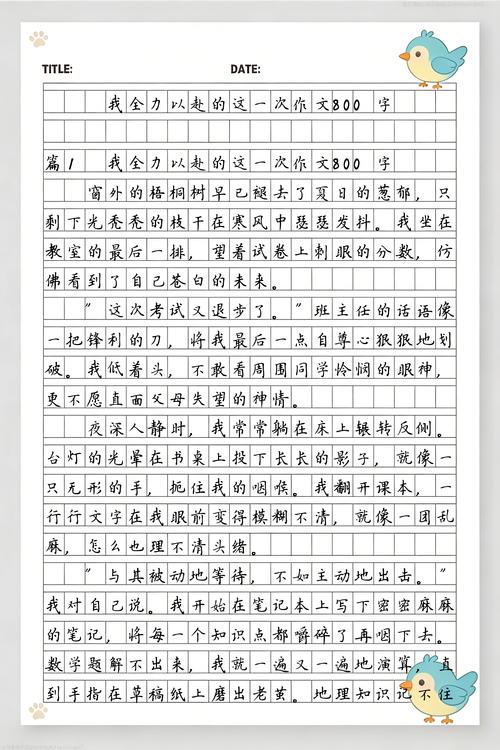 TITLE: DATE:
我全力以赴的这一次作文800 字
篇1 我全力以赴的这一次作文800 字
窗外的梧桐树早已褪去了夏日的葱郁，只
剩下光秃秃的枝干在寒风中瑟瑟发抖。我坐在
教室的最后一排，望着试卷上刺眼的分数，仿
佛看到了自己苍白的未来。
"这次考试又退步了。"班主任的话语像
一把锋利的刀，将我最后一点自尊心狠狠地划
破。我低着头，不敢看周围同学怜悯的眼神，
更不愿直面父母失望的神情。
夜深人静时，我常常躺在床上辗转反侧。
台灯的光晕在书桌上投下长长的影子，就像一
只无形的手，扼住我的咽喉。我翻开课本，一
行行文字在我眼前变得模糊不清，就像一团乱
麻，怎么也理不清头绪。
"与其被动地等待，不如主动地出击。"
我对自己说。我开始在笔记本上写下密密麻麻
的笔记，将每一个知识点都嚼碎了再咽下去。
数学题解不出来，我就一遍又一遍地演算，直
到手指在草稿纸上磨出老茧。地理知识记不住